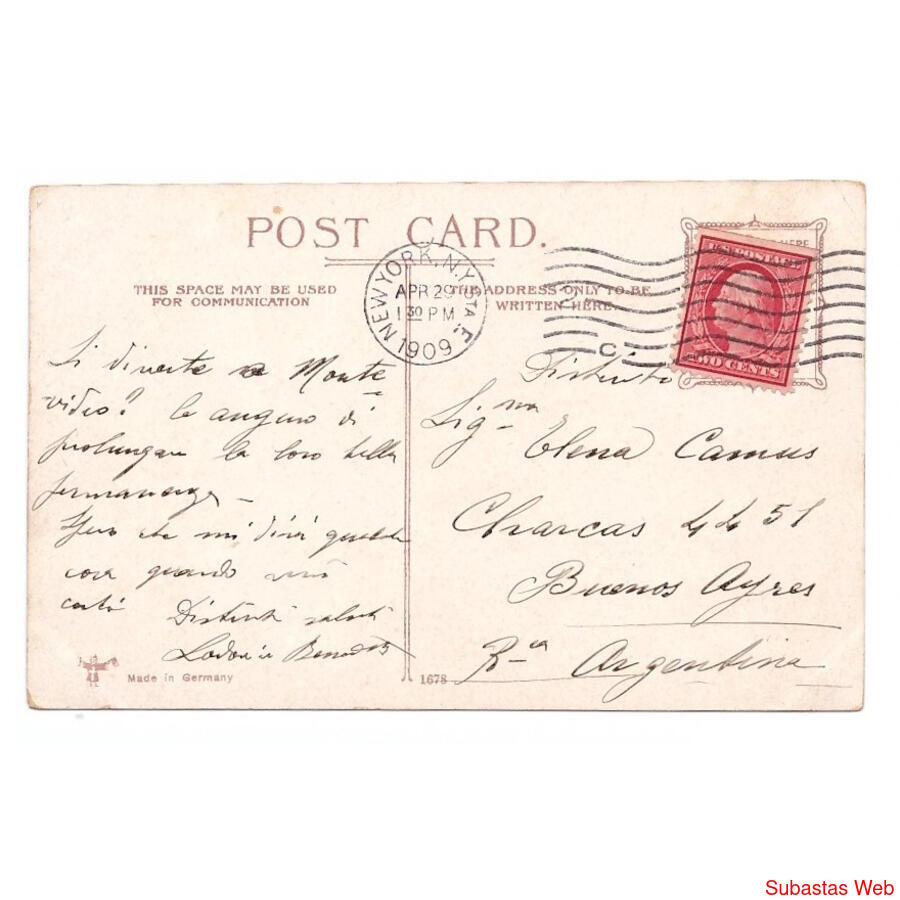 POST CARD.
THIS SPACE MAY BE USED
FOR COMMUNICATION
THE ADDRESS ONLY TO BE
WRITTEN HERE.
NEW YORK, N.Y. STA. F.
APR 29
1 30 PM
1909
C
U.S. POSTAGE
TWO CENTS
HERE
Si diverte a Monte
video? le auguro di
prolungare la loro bella
permanenza
Spero che mi dirà qualche
cosa quando verrò
costì
Distinti saluti
Distinta
Sig.na
Elena Camus
Charcas 4451
Buenos Ayres
R-ca Argentina
Made in Germany
1678
Subastas Web